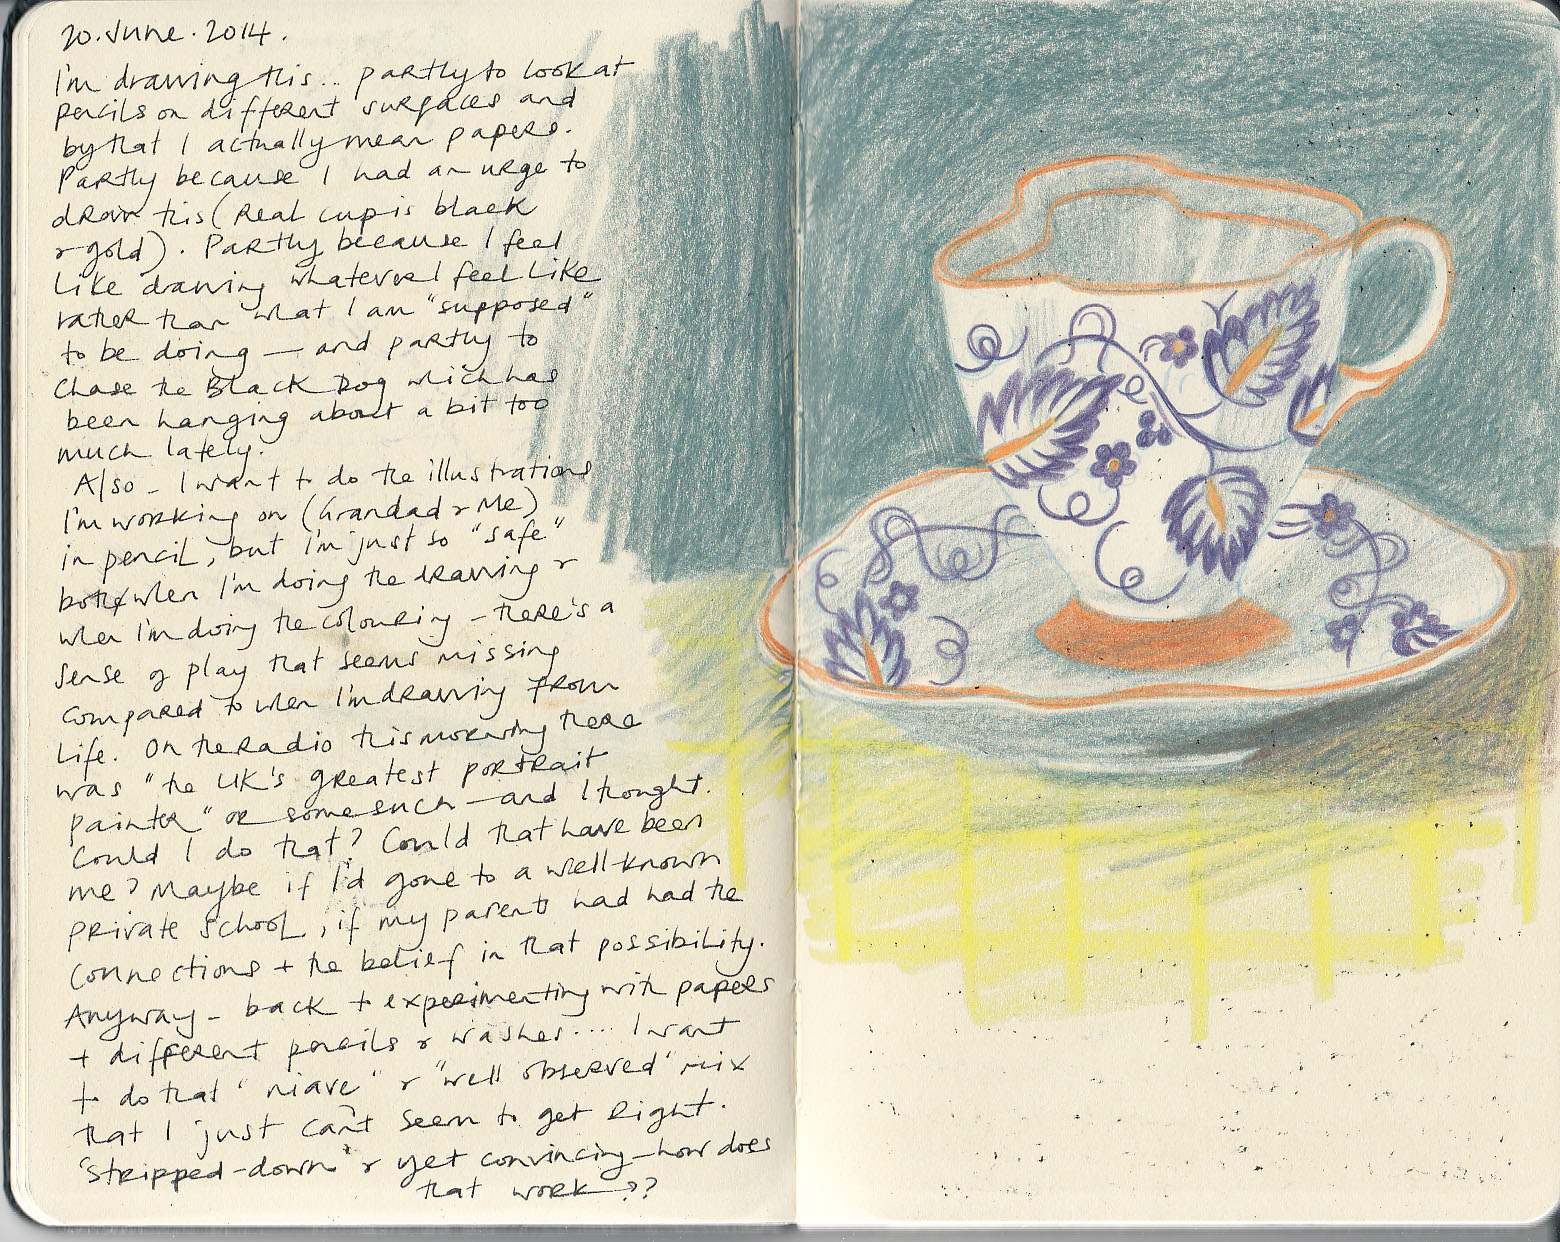 20.June.2014.
I'm drawing this... partly to look at
pencils on different surfaces and
by that I actually mean papers.
Partly because I had an urge to
draw this (Real cup is black
& gold). Partly because I feel
like drawing whatever I feel like
rather than what I am "supposed"
to be doing — and partly to
chase the Black Dog which has
been hanging about a bit too
much lately.
Also - I want to do the illustrations
I'm working on (Grandad & Me)
in pencil, but I'm just so "safe"
both when I'm doing the drawing &
when I'm doing the colouring - there's a
sense of play that seems missing
compared to when I'm drawing from
life. On the Radio this morning there
was "the UK's greatest portrait
painter" or some such — and I thought.
Could I do that? Could that have been
me? Maybe if I'd gone to a well-known
private school, if my parents had had the
connections + the belief in that possibility.
Anyway - back to experimenting with papers
+ different pencils & washes.... I want
to do that "niave" & "well observed" mix
that I just can't seem to get right.
"stripped-down" & yet convincing - how does
that work??